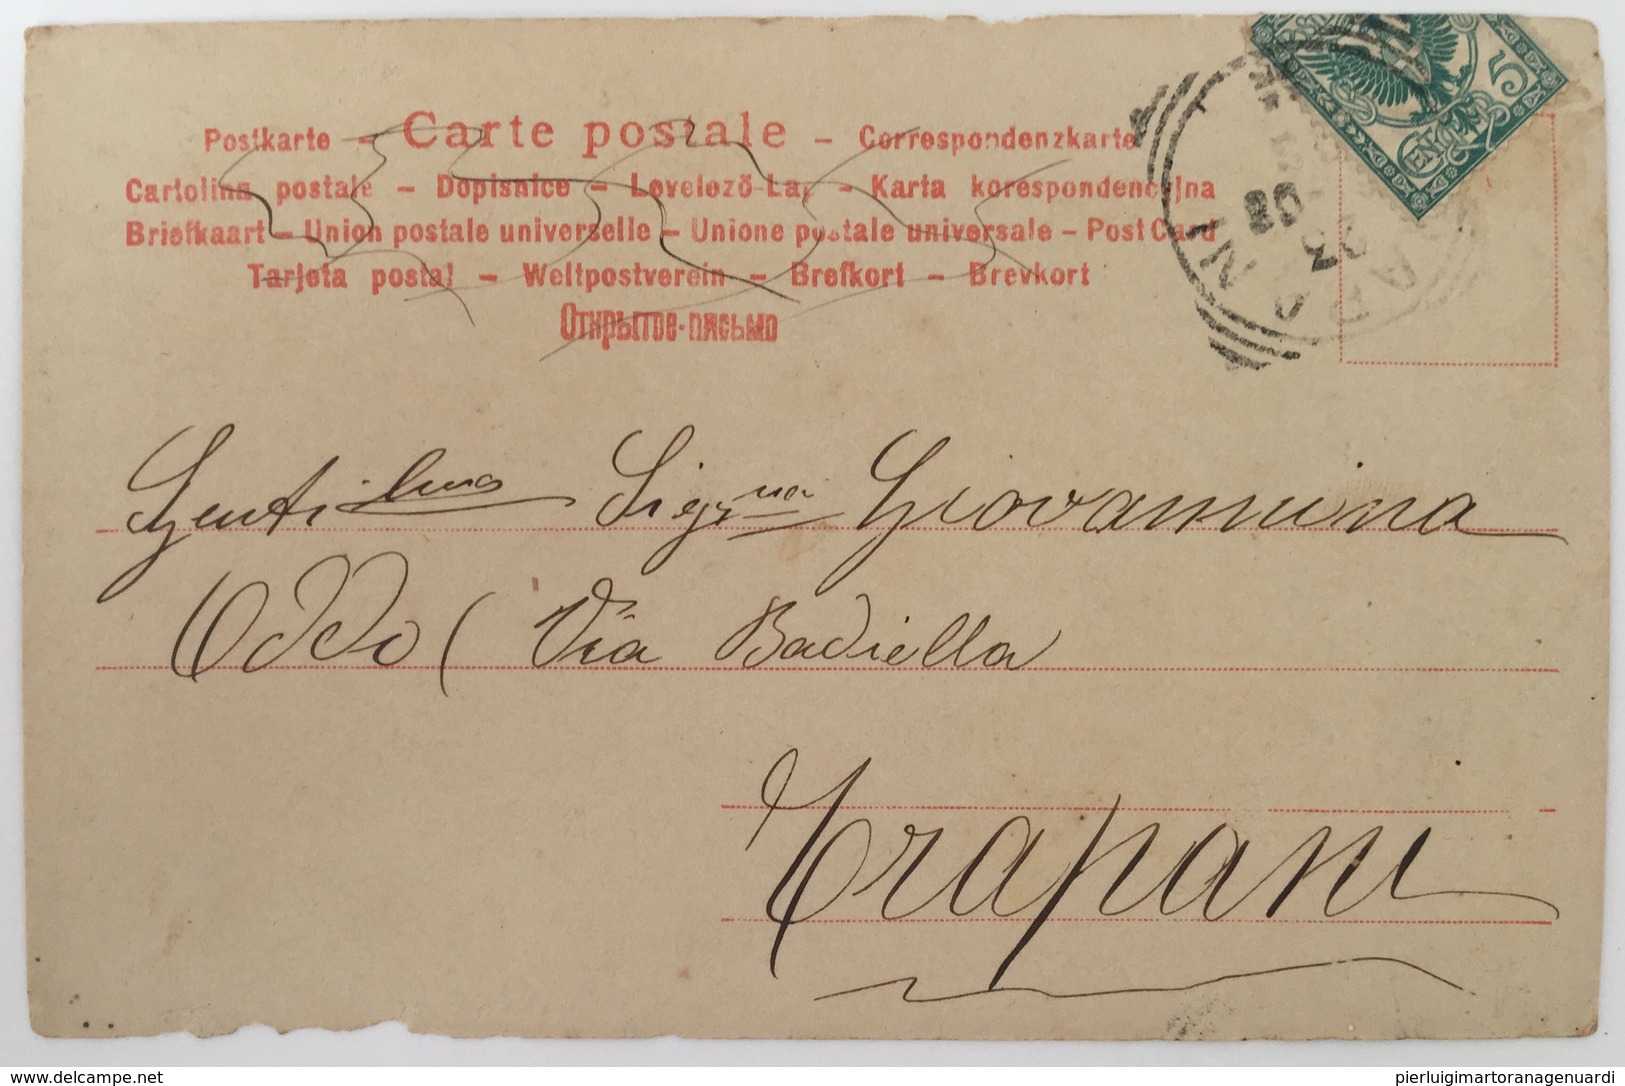 Postkarte – Carte postale – Correspondenzkarte
Cartolina postale – Dopisnice – Levelező-Lap – Karta korespondencyjna
Briefkaart – Union postale universelle – Unione postale universale – Post Card
Tarjeta postal – Weltpostverein – Brefkort – Brevkort
Открытое-письмо
CENT. 5
Gentilma Sigrna Giovannina
Oddo (Via Badiella
Trapani
www.delcampe.net
pierluigimartoranagenuardi